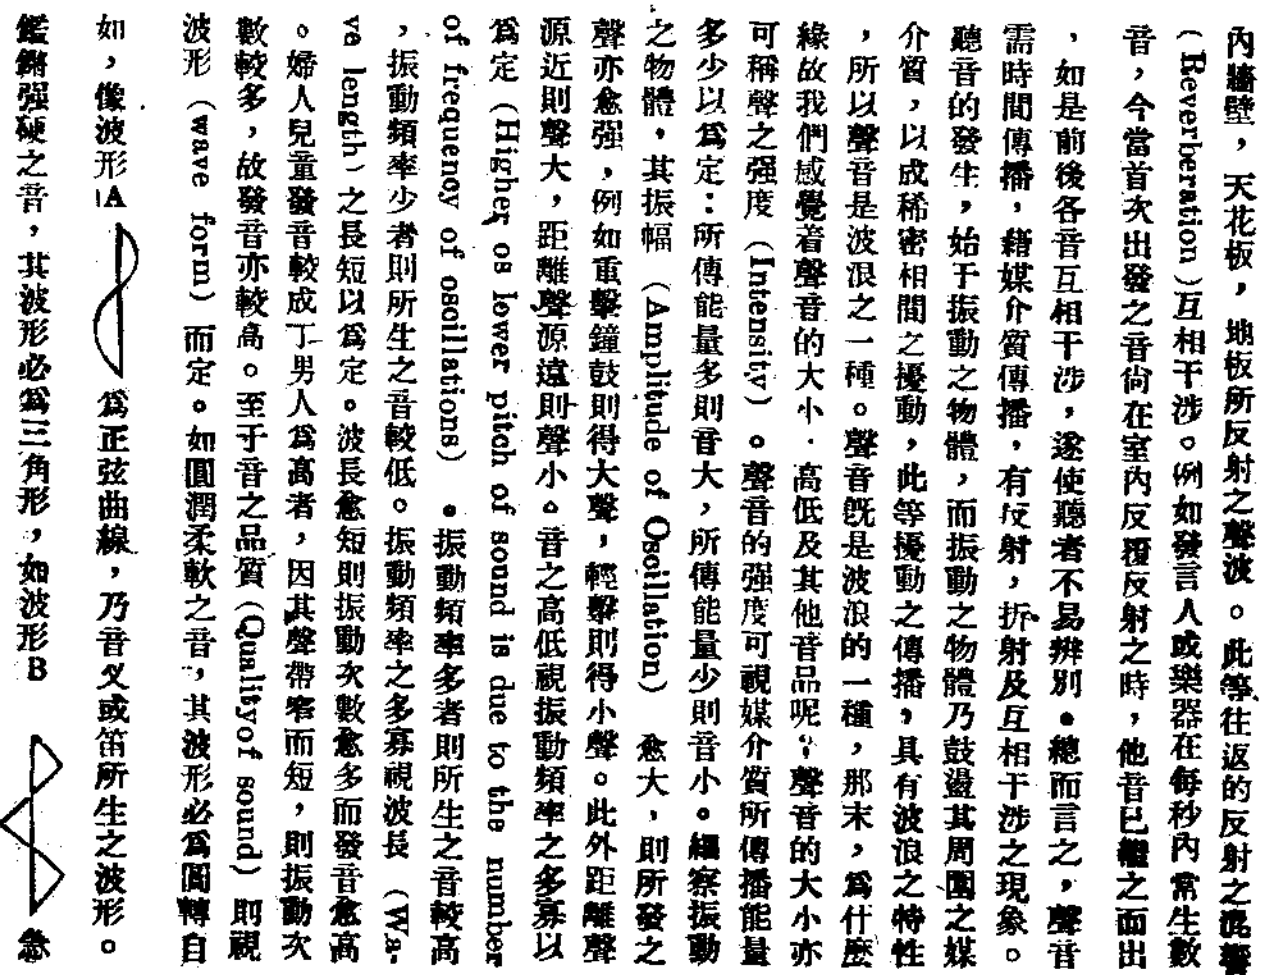 內牆壁，天花板，地板所反射之聲波。此等往返的反射之混響
（Reverberation）互相干涉。例如發言人或樂器在每秒內常生數
音，今當首次出發之音尙在室內反覆反射之時，他音已繼之而出
，如是前後各音互相干涉，遂使聽者不易辨別。總而言之，聲音
需時間傳播，藉媒介質傳播，有反射，折射及互相干涉之現象。
聽音的發生，始于振動之物體，而振動之物體乃鼓盪其周圍之媒
介質，以成稀密相間之擾動，此等擾動之傳播，具有波浪之特性
，所以聲音是波浪之一種。聲音旣是波浪的一種，那末，爲什麼
緣故我們感覺着聲音的大小．高低及其他音品呢？聲音的大小亦
可稱聲之强度（Intensity）。聲音的强度可視媒介質所傳播能量
多少以爲定：所傳能量多則音大，所傳能量少則音小。細察振動
之物體，其振幅（Amplitude of Osoillation）愈大，則所發之
聲亦愈强，例如重擊鐘鼓則得大聲，輕擊則得小聲。此外距離聲
源近則聲大，距離聲源遠則聲小。音之高低視振動頻率之多寡以
爲定（Higher os lower pitch of sound is due to the number
of frequency of osoillations）。振動頻率多者則所生之音較高
，振動頻率少者則所生之音較低。振動頻率之多寡視波長（Wa-
ve length）之長短以爲定。波長愈短則振動次數愈多而發音愈高
。婦人兒童發音較成丁男人爲高者，因其聲帶窄而短，則振動次
數較多，故發音亦較高。至于音之品質（Qualityof sound）則視
波形（wave form）而定。如圓潤柔軟之音，其波形必爲圓轉自
如，像波形A 爲正弦曲線，乃音义或笛所生之波形。
鏗鏘强硬之音，其波形必爲三角形，如波形B 急